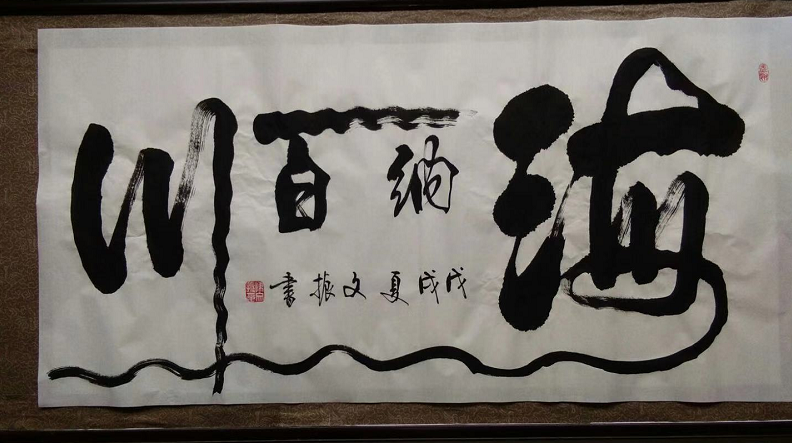 海纳百川
戊戌夏文振书